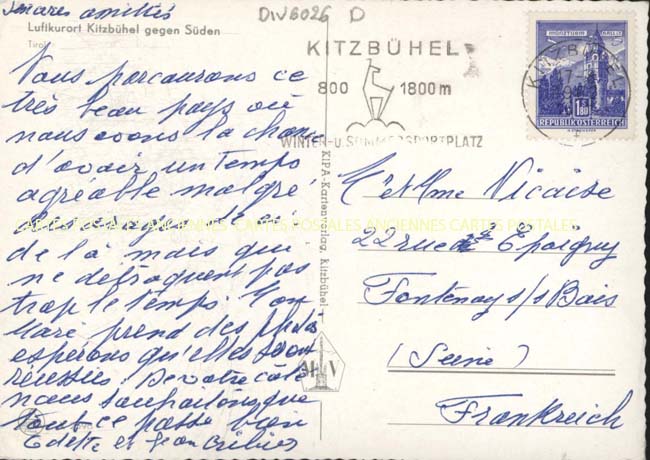 amitiés
DW6026 D
Luftkurort Kitzbühel gegen Süden
Tirol
Nous parcourons ce
très beau pays où
nous avons la chance
d'avoir un temps
agréable malgré
de là mais qui
ne détraquent pas
trop le temps. Mon
Mari prend des photos
espérons qu'elles seront
réussies. De votre côté
nous souhaitons que
tout ce passe bien
Odette et Jean
KITZBÜHEL
800 1800 m
WINTER- u. SOMMERSPORTPLATZ
KITZBÜHEL
MÜNZTURM HALL i. T.
1.80
REPUBLIK ÖSTERREICH
KIPA-Kartenverlag, Kitzbühel
M V
M et Mme Nicaise
22 rue Epoigny
Fontenay s/s Bois
(Seine)
Frankreich
CARTES POSTALES ANCIENNES CARTES POSTALES ANCIENNES CARTES POSTALES